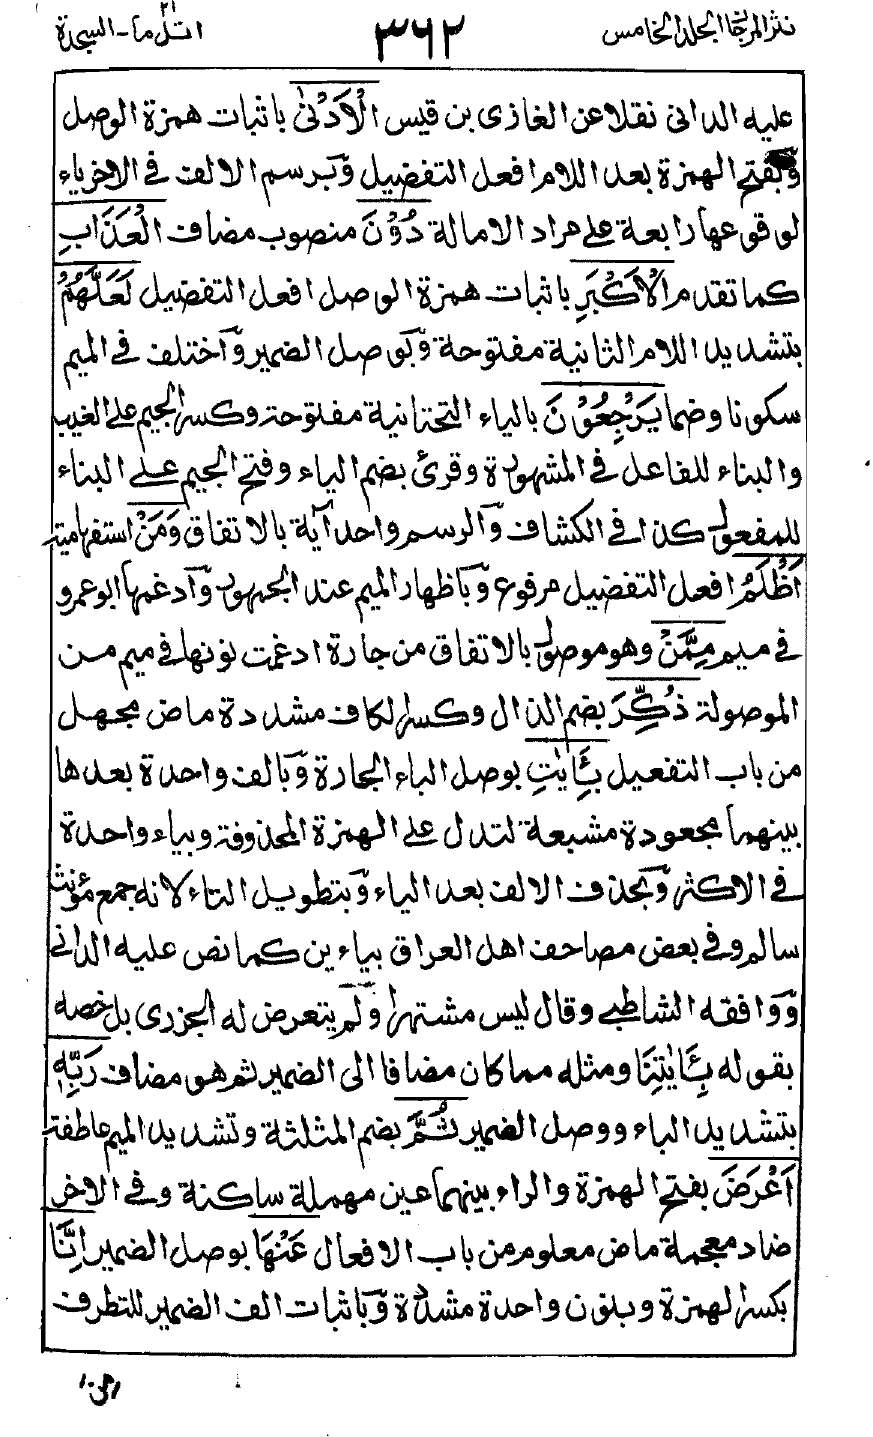 نثر المرجان المجلد الخامس ٣٦٢ اتل ما ٢١ - السجدة
عليه الدانى نقلا عن الغازى بن قيس الْاَدْنٰى باثبات همزة الوصل
وبفتح الهمزة بعد اللام افعل التفضيل وبرسم الالف فى الاخر ياء
لوقوعها رابعة على مراد الامالة دُوْنَ منصوب مضاف الْعَذَابِ
كما تقدم الْاَكْبَرِ باثبات همزة الوصل افعل التفضيل لَعَلَّهُمْ
بتشديد اللام الثانية مفتوحة وبوصل الضمير واختلف فى الميم
سكونا وضما يَرْجِعُوْنَ بالياء التحتانية مفتوحة وكسر الجيم على الغيب
والبناء للفاعل فى المشهورة وقرئ بضم الياء وفتح الجيم على البناء
للمفعول كذا فى الكشاف والرسم واحد اٰية بالاتفاق وَمَنْ استفهامية
اَظْلَمُ افعل التفضيل مرفوع وباظهار الميم عند الجمهور وادغمها ابو عمرو
فى ميم مِمَّنْ وهو موصول بالاتفاق من جارة ادغمت نونها فى ميم من
الموصولة ذُكِّرَ بضم الذال وكسر الكاف مشددة ماض مجهل
من باب التفعيل بِـَٔايٰتِ بوصل الباء الجارة وبالف واحدة بعدها
بينهما مجعودة مشبعة لتدل على الهمزة المحذوفة وبياء واحدة
فى الاكثر وبحذف الالف بعد الياء وبتطويل التاء لانه جمع مؤنث
سالم وفى بعض مصاحف اهل العراق بياءين كما نص عليه الدانى
ووافقه الشاطبى وقال ليس مشتهرا ولم يتعرض له الجزرى بل خصه
بقوله بِـَٔايٰتِنَا ومثله مما كان مضافا الى الضمير ثم هو مضاف رَبِّهٖ
بتشديد الباء ووصل الضمير ثُمَّ بضم المثلثة وتشديد الميم عاطفة
اَعْرَضَ بفتح الهمزة والراء بينهما عين مهملة ساكنة وفى الاخر
ضاد معجمة ماض معلوم من باب الافعال عَنْهَا بوصل الضمير اِنَّا
بكسر الهمزة وبنون واحدة مشددة وباثبات الف الضمير للتطرف